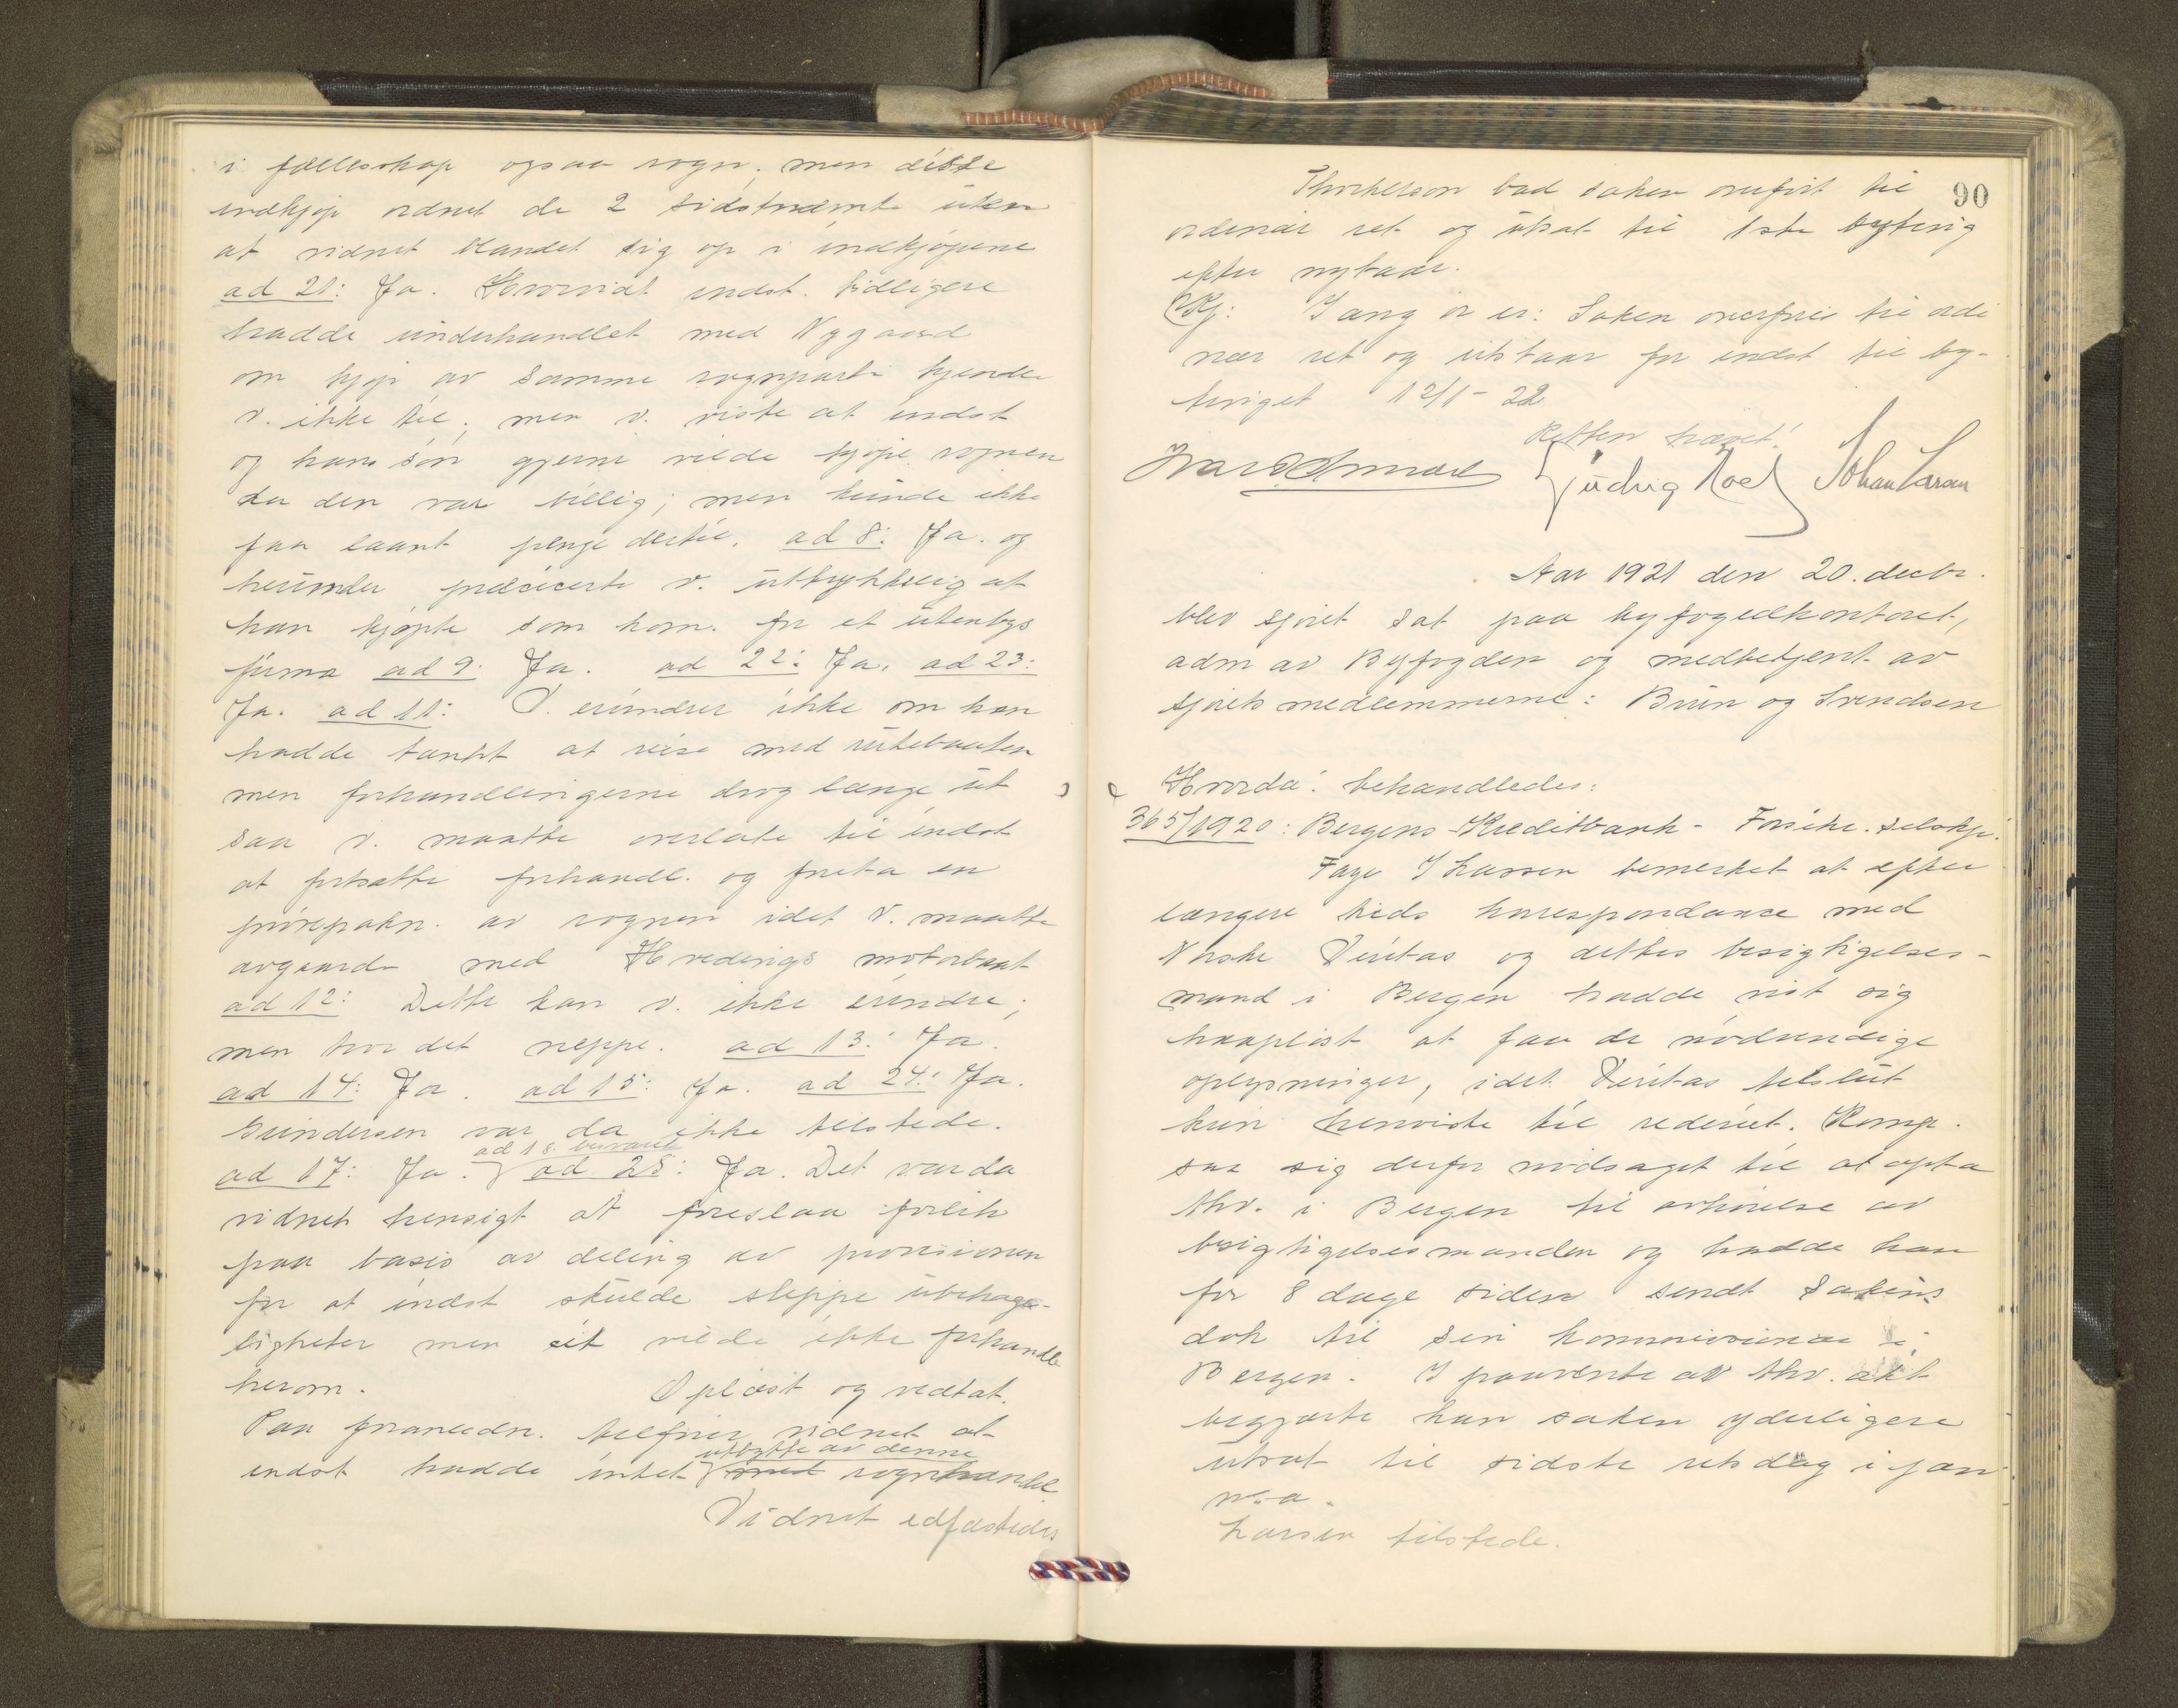 i fællesskap ogsaa rogn; men disse
indkjøp ordnet de 2 sidstnævnte uten
at vidnet blandet sig op i indkjøpene
ad 21: Ja. Hvorvidt indst. tidligere
hadde underhandlet med Nygaard
om kjøp av samme rognparti kjender
v. ikke til; men v. viste at indst
og hans søn gjerne vilde kjøpe rognen
da den var billig; men kunde ikke
faa laant penge dertil. ad 8: Ja. og
herunder præcicerte v. uttrykkelig at
han kjøpte som kom. for et utenbys
firma ad 9: Ja. ad 22: Ja. ad 23:
Ja. ad 11: V. erindrer ikke om han
hadde tænkt at reise med rutebaaten
men forhandlingerne drog længe ut
saa v. maatte overlate til indst
at fortsætte forhandl. og foreta en
prøvepakn. av rognen idet V. maatte
avgaarde med Hvedings motorbaat
ad 12: Dette kan v. ikke erindre;
men tror det neppe. ad 13: Ja.
ad 14: Ja. ad 15: Ja. ad 24: Ja.
Gundersen var da ikke tilstede.
ad 18. besvaret
ad 17: Ja. ad 25: Ja. Det var da
vidnets hensigt at foreslaa forlik
paa basis av deling av provisionen
for at indst skulde slippe ubehage-
ligheter men cit vilde ikke forhandle
herom. Oplæst og vedtat.
Paa foranledn. tilføier vidnet at
utbytte av denne
indst hadde intet med rognhandel
Vidnet edfæstedes
90
Thorkelson bad saken overført til
ordinær ret og utsat til 1ste byting
efter nytaar.
Kj: Iang er: Saken overføres til ordi
nær ret og utstaar for indst til by-
tinget 12/1-22
Retten hævet!
Ludvig Roel Johan Larsen
Aar 1921 den 20. decbr.
blev sjøret sat paa byfogedkontoret,
adm av Byfogden og medbetjent av
sjøretsmedlemmerne: Bruun og Svendsen
Hvorda: behandledes:
365/1920: Bergens Kreditbank - Forsikr. selskp.
Faye J Larssen bemerket at efter
længere tids korrespondance med
Norske Veritas og dettes besigtigelses-
mand i Bergen hadde vist sig
haapløst at faa de nødvendige
oplysninger, idet Veritas tilslut
kun henviste til rederiet. Komp.
saa sig derfor nødsaget til at opta
thv. i Bergen til avhørelse av
besigtigelsesmanden og hadde han
for 8 dage siden sendt sakens
dok til sin kommissionær i
Bergen. I paavente av thv. akt
begjærte han saken yderligere
utsat til sidste retsdag i jan
n. a.
Larsen tilstede.